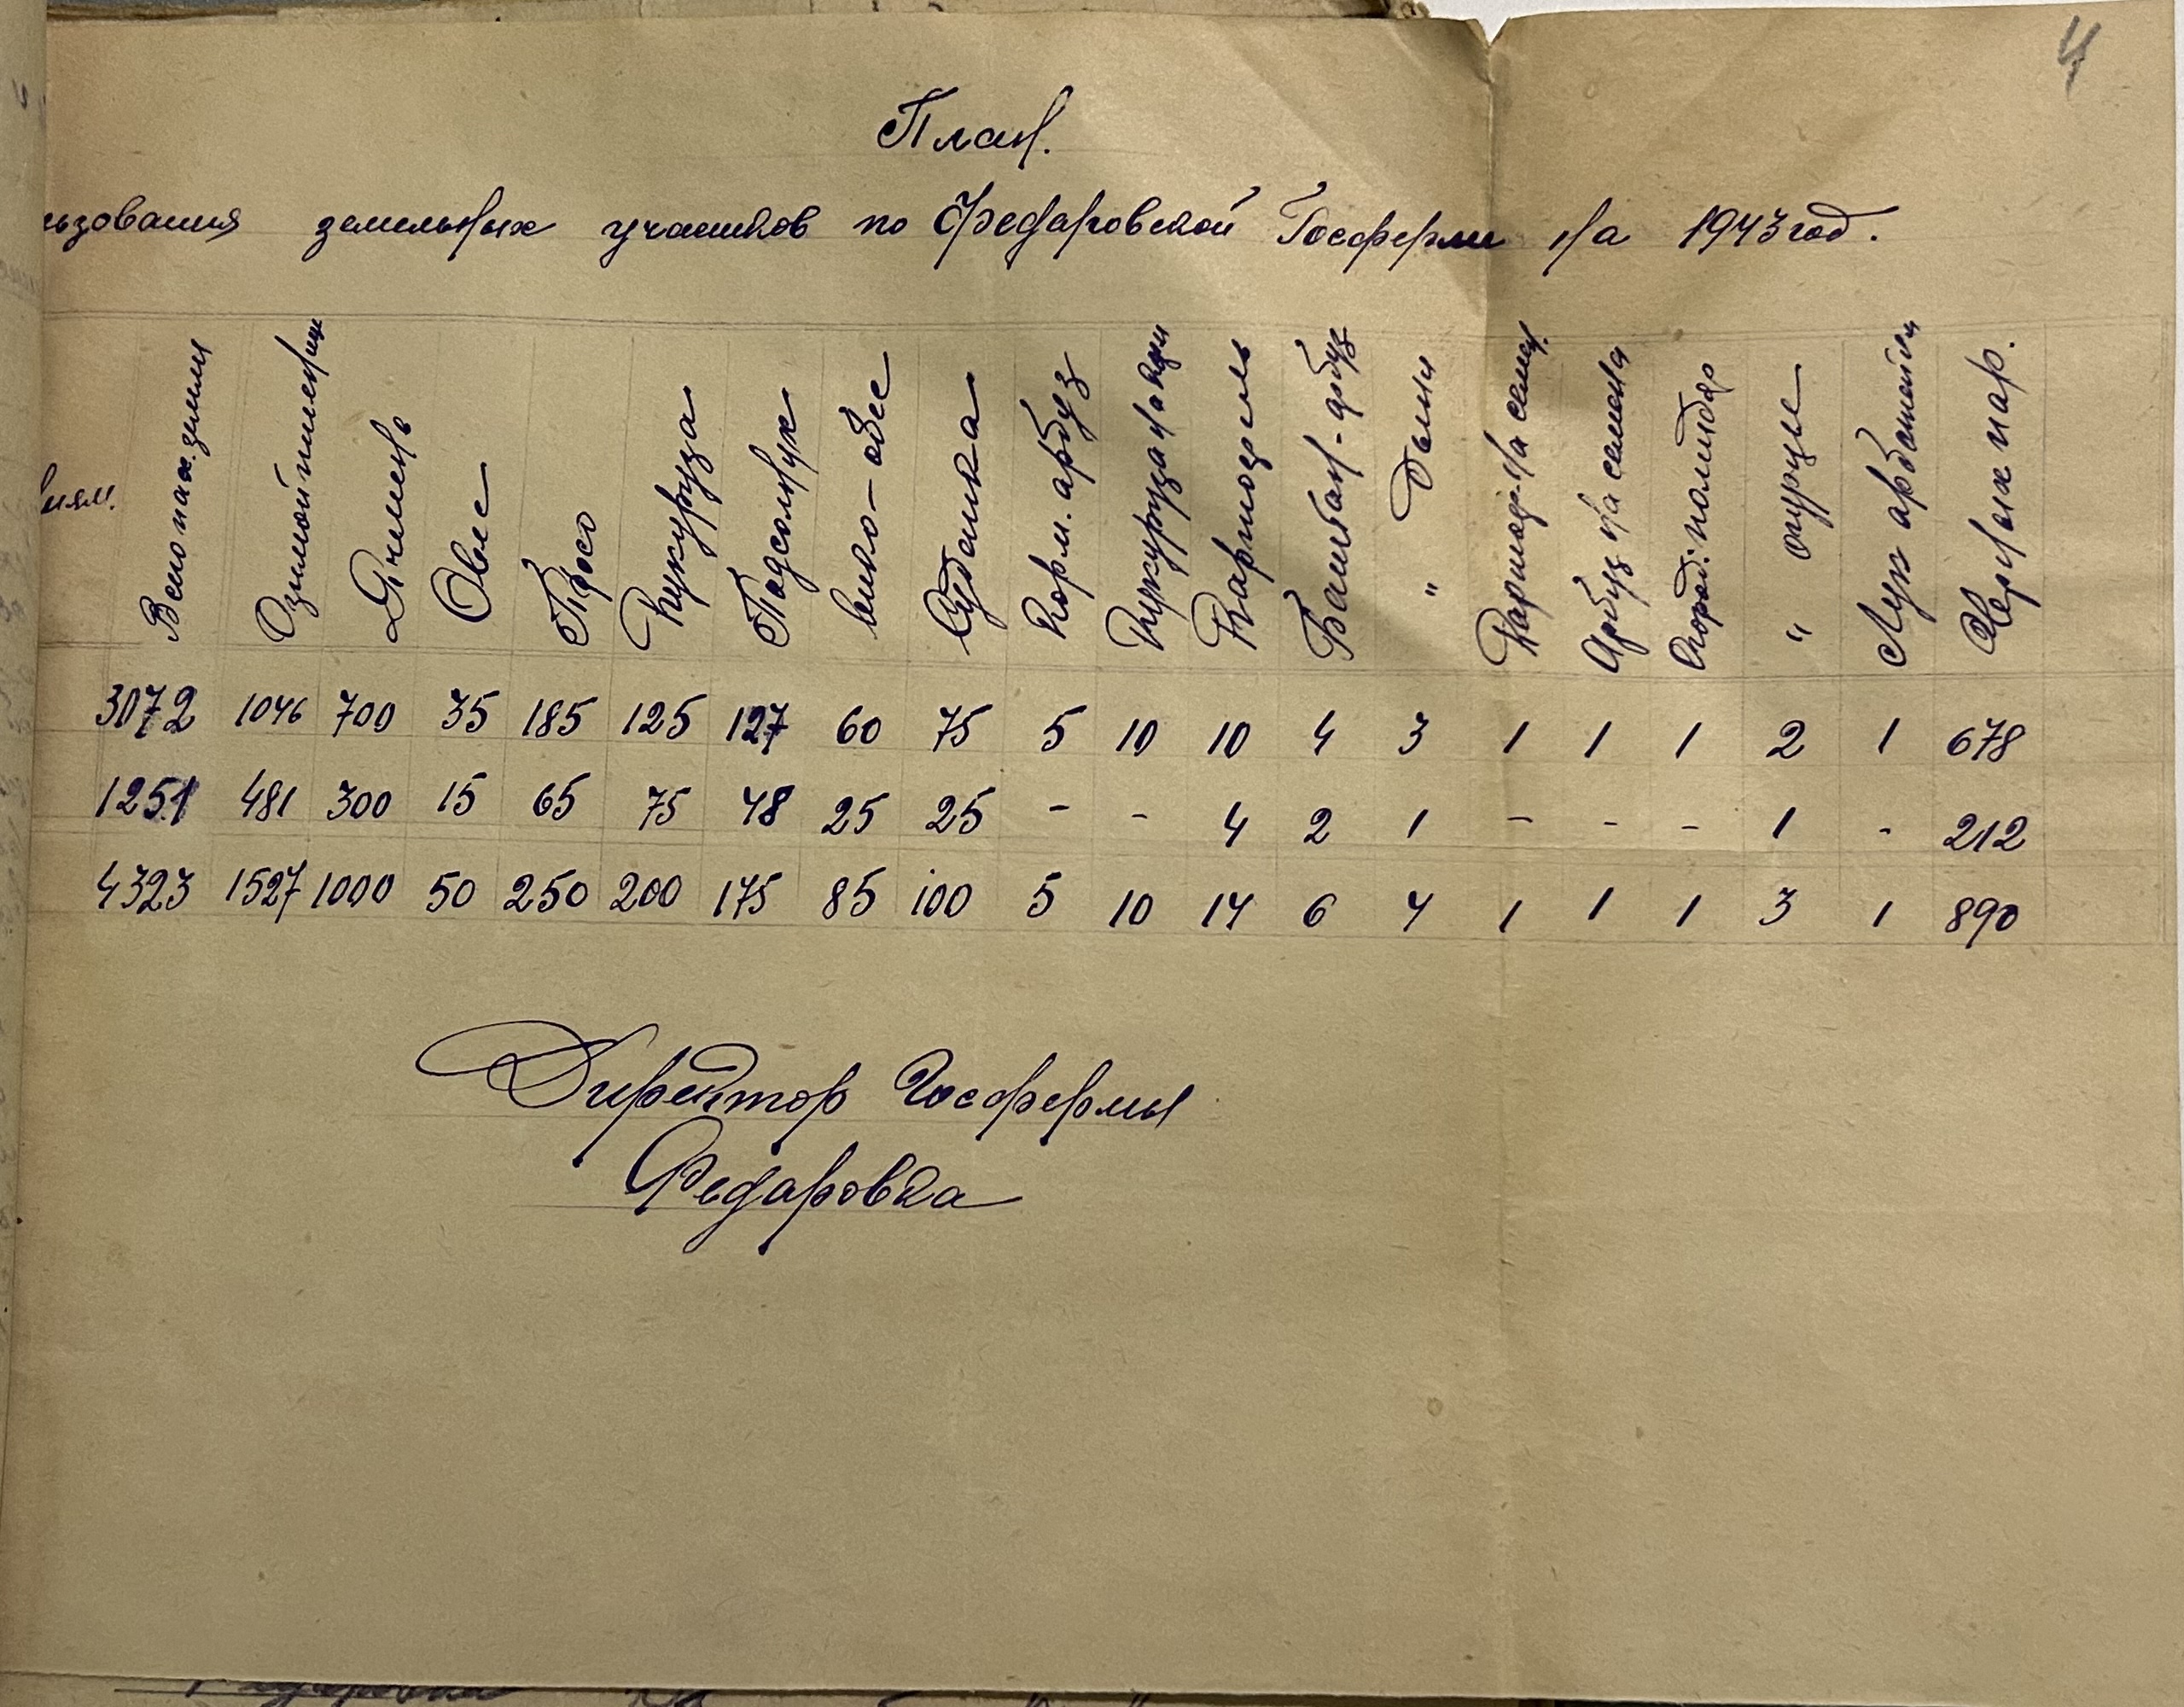 4
План.
льзования земельных участков по Федаровской Госферми на 1943 год.
Всего пах. земли Озимой пшеницы Ячмень Овес Просо Кукуруза Подсолнух вико-овес Суданка Корм. арбуз Кукуруза Картофель Баштан-арбуз " Дыни на семен. Арбуз на семена Огород. помидар " огурцы Лук Черных пар.
3072 1046 700 35 185 125 127 60 75 5 10 10 4 3 1 1 1 2 1 678
1251 481 300 15 65 75 48 25 25 - - 4 2 1 - - - 1 - 212
4323 1527 1000 50 250 200 175 85 100 5 10 14 6 4 1 1 1 3 1 890
Директор Госфермы
Федаровка